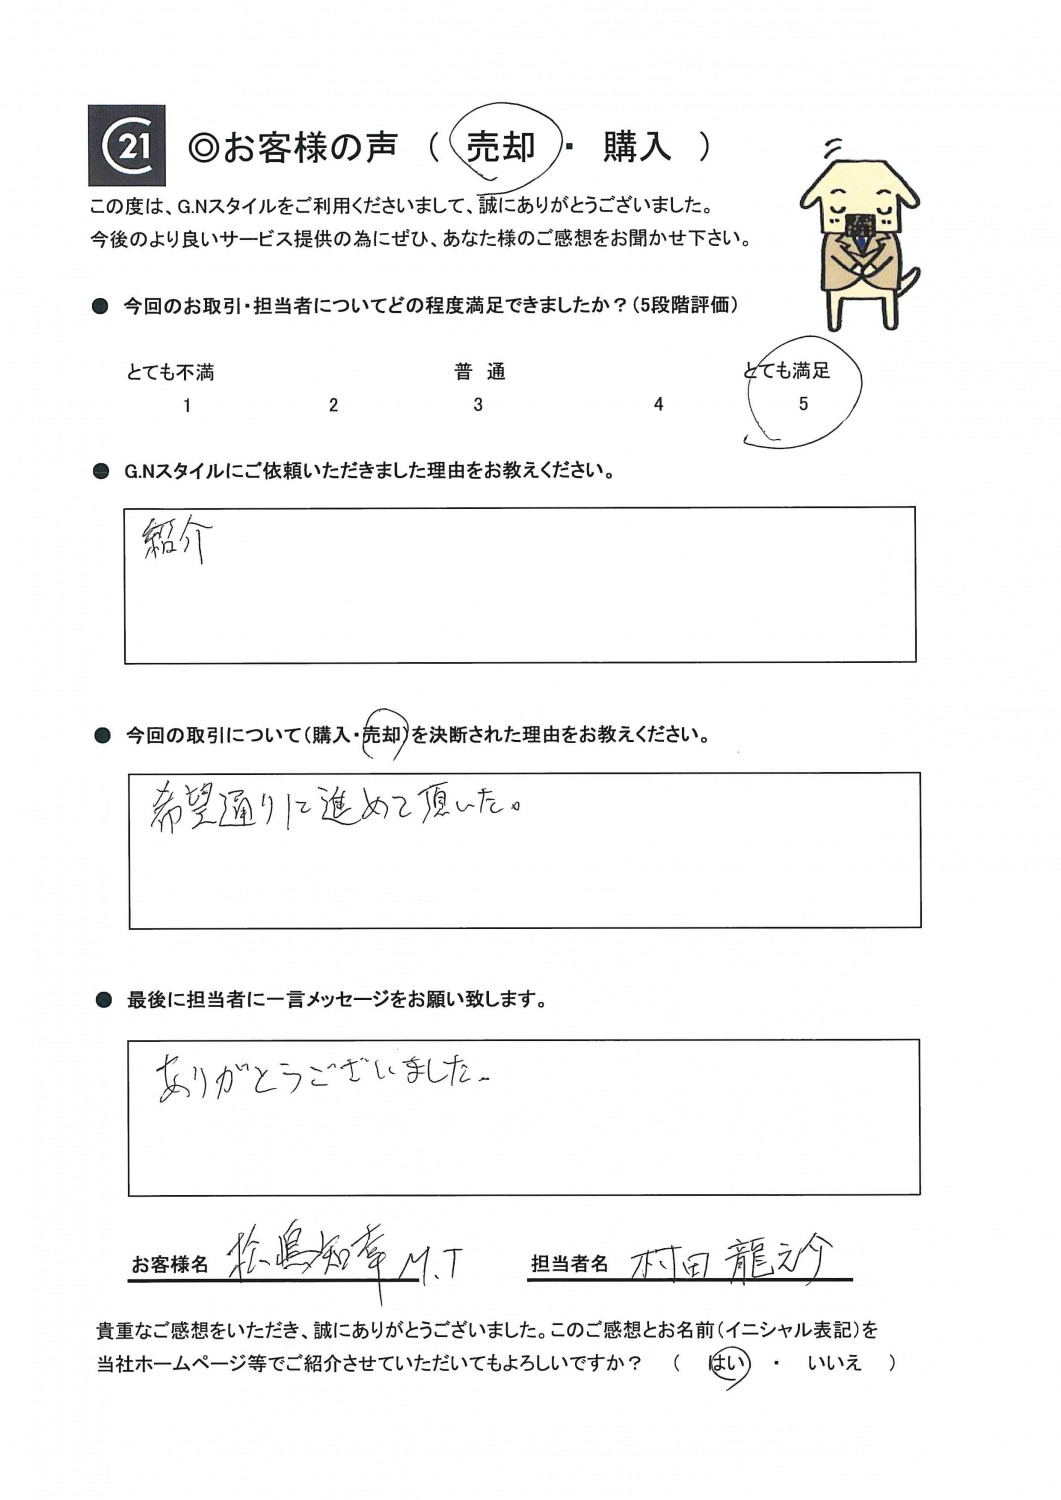 C21
◎お客様の声 ( 売却 ・ 購入 )
この度は、G.Nスタイルをご利用くださいまして、誠にありがとうございました。
今後のより良いサービス提供の為にぜひ、あなた様のご感想をお聞かせ下さい。
● 今回のお取引・担当者についてどの程度満足できましたか？(5段階評価)
とても不満 普 通 とても満足
1 2 3 4 5
● G.Nスタイルにご依頼いただきました理由をお教えください。
紹介
● 今回の取引について(購入・売却)を決断された理由をお教えください。
希望通りに進めて頂いた。
● 最後に担当者に一言メッセージをお願い致します。
ありがとうございました。
お客様名 松島知幸 M.T 担当者名 村田 龍之介
貴重なご感想をいただき、誠にありがとうございました。このご感想とお名前(イニシャル表記)を
当社ホームページ等でご紹介させていただいてもよろしいですか？ ( はい ・ いいえ )